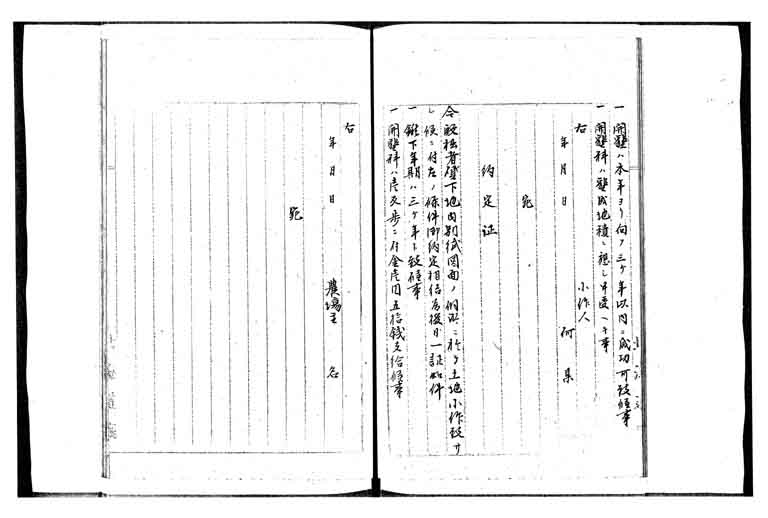 一 開墾ハ本年ヨリ向フ三ヶ年以内ニ成功可致候事
一 開墾料ハ墾成地積ニ應シ申受ヘキ事
右
小作人
年月日 何某
宛
約定証
今般拙者貸下地内別紙図面ノ個所ニ於テ土地小作致サ
シ候ニ付左ノ條件御約定相結為後日一証如件
一 鍬下年期ハ三ヶ年ト致候事
一 開墾料ハ壱反歩ニ付金壱円五拾銭支給候事
右
年月日 農場主 名
宛